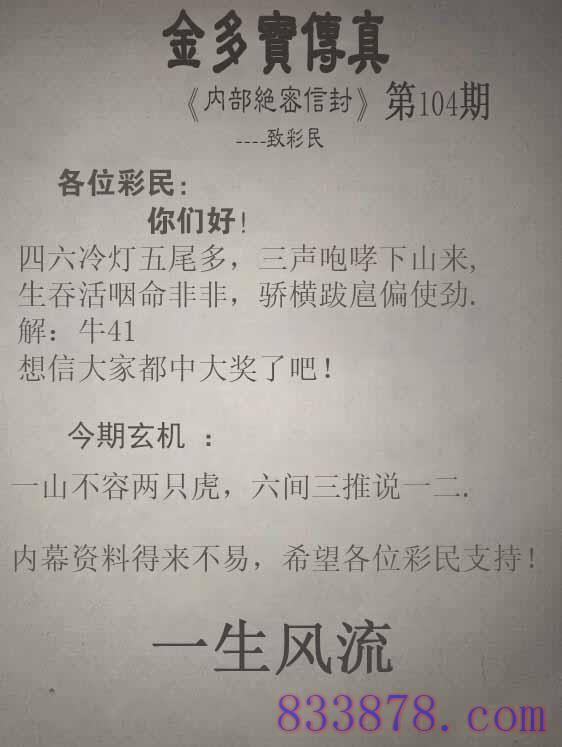 金多寶傳真
《内部絶密信封》第104期
----致彩民
各位彩民:
你们好!
四六冷灯五尾多，三声咆哮下山来,
生吞活咽命非非，骄横跋扈偏使劲.
解：牛41
想信大家都中大奖了吧！
今期玄机 ：
一山不容两只虎，六间三推说一二.
内幕资料得来不易，希望各位彩民支持！
一生风流
833878.com